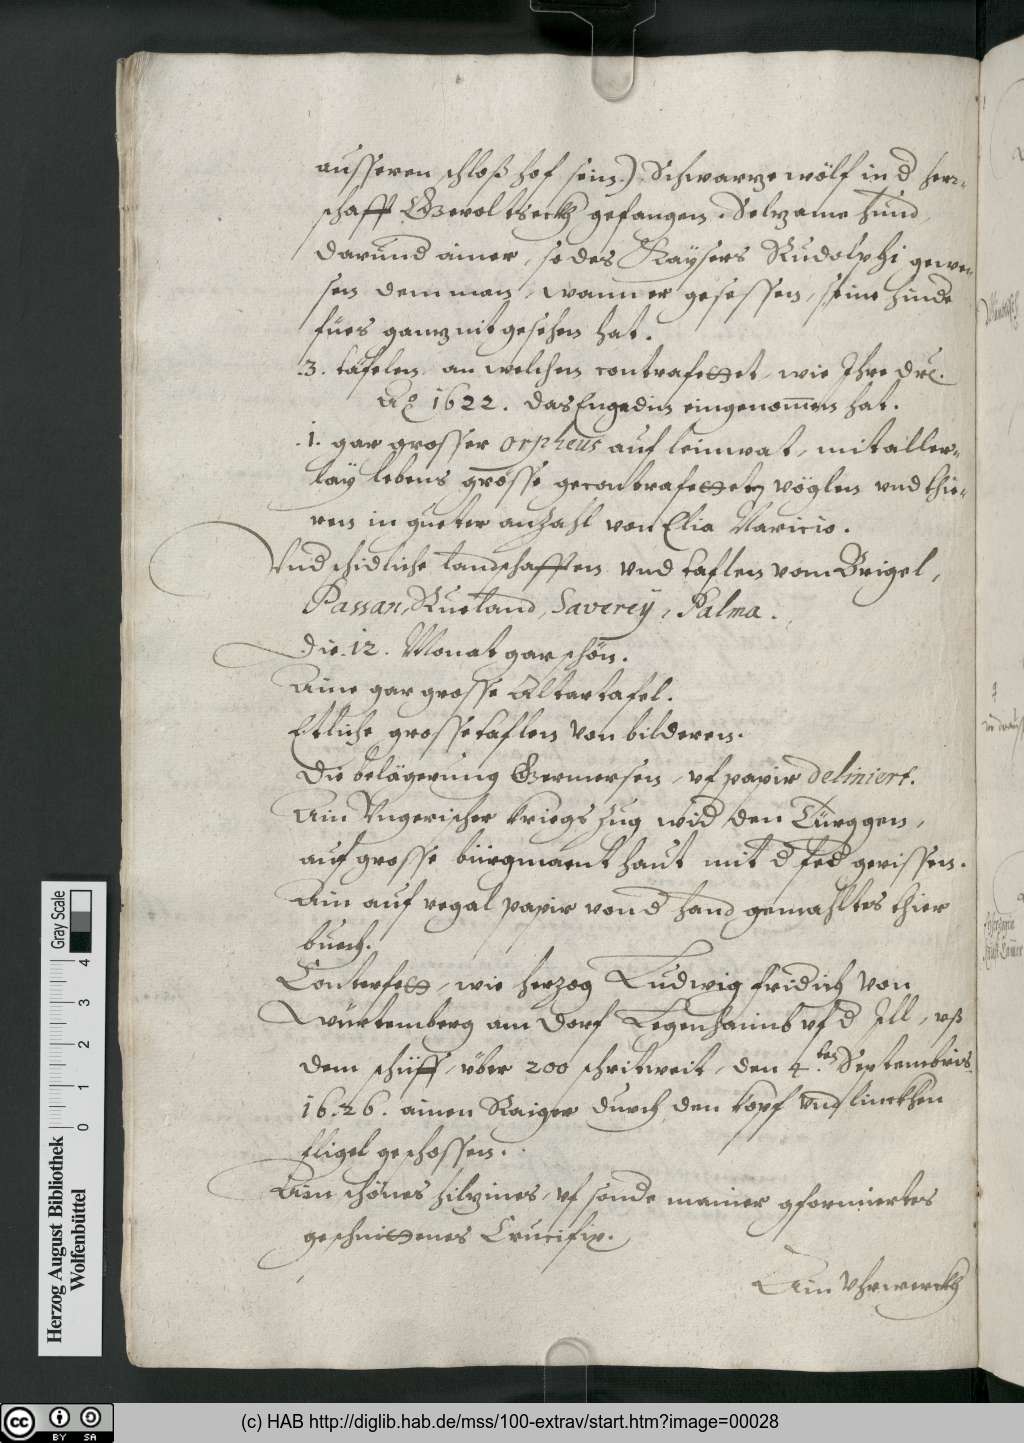 ausseren schloß hof sein.) Schwarze wölf in d herr-
schafft Geroltseckh gefangen. Selzame hund,
darund ainer, so des Kaÿsers Rudolphi gewe-
sen dem man, wann er gesessen, seine hinde
fües ganz nit gesehen hat.
.3. täfelen an welchen contrafettet, wie Ihre Drl.
Aº 1622. das Engadin eingenommen hat.
.1. gar grosser orpheus auf leinwat, mit aller-
laÿ lebens grösse gecontrafetteten vöglen vnd thie-
ren in gueter anzahl von Elia Naricio.
Vnd schidliche landschafften vnd taflen vom Brigel,
Passan, Rueland, Saverÿ, Palma.
Die .12. Monat gar schön.
Aine gar grosse Altartafel.
Etliche grosse taflen von bilderen.
Die belägerung Germersen, vf papir deliniert.
Ain Vngerischer kriegs zug wid den Türggen,
auf grosse bürgment haut mit d fed gerissen.
Ain auf regal papir von d hand gemahltes thier
buech.
Conterfett, wie herzog Ludwig fridich von
Würtemberg am dorf Legenhaimb vf d Ill, vß
dem schiff, über 200 schritweit, den 4.ten Septembris
16.26. ainen Raiger durch den kopf vnd linckhen
fligel geschossen.
Ain schönes hilzines, vf sonde manier gformiertes
geschnittenes Crucifix.
Ain Vhrwerckh
Herzog August Bibliothek
Wolfenbüttel
0 1 2 3 4
Gray Scale
(c) HAB http://diglib.hab.de/mss/100-extrav/start.htm?image=00028
cc BY SA